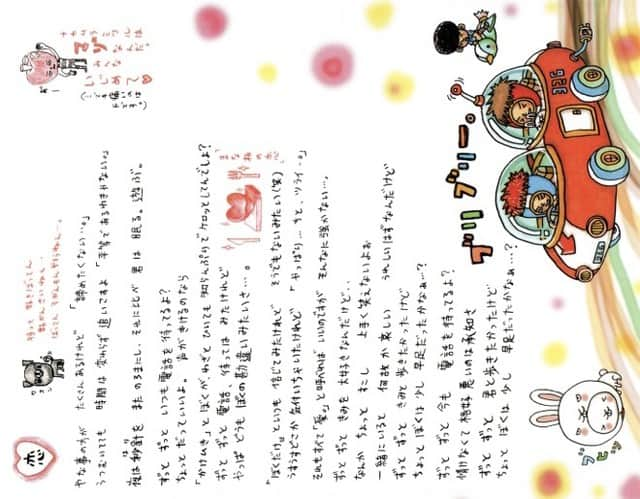 ナカムラミツルは
みんな
いじめて♡
恋
待って 話きばってん
「諦めたくない…。」
やな事の方が たくさんあるけれど
うつむいてても 時間は 変わらず 追いこすよ 「平等で あるわきゃない。」
夜は秒針を またのろまにし、それに比べ 君は 眠る。遊ぶ。
ずっと ずっと いつも 電話を 待ってるよ?
ちょっと だっていいよ。 声がきけるのなら
「かけひき」と ぼくが わざと してないでしょ?
ずっと ずっと 電話、待ってはみたけれど
やっぱ どうも ぼくの 勘違いみたいさ…。
"ぼくだけ。"といつも 信じてみたけれど どうでもないみたい(笑)
うすうすどこか 気付いちゃいたけれど 「やっぱり…すと、ツライ…。」
それもすべて「愛。」と呼べれば いいのですが そんなに 強かない…。
ずっと ずっと きみを 大好き なんだけど、、
なんか ちょっと すこし 上手く 笑えないよぉ
一緒にいると 何故か 哀しい うれしいはず なんだけど
ずっと ずっと きみと 歩きたかったけど
ちょっと ぼくは 少し 早足だったかなぁ…?
ずっと ずっと 今も 電話を 待ってるよ?
情けなくて 格好悪いのは 承知さ
ずっと ずっと 君と 歩きたかったけど
ちょっと ぼくは 少し 早足だったかなぁ…?
ブリブリー。
326